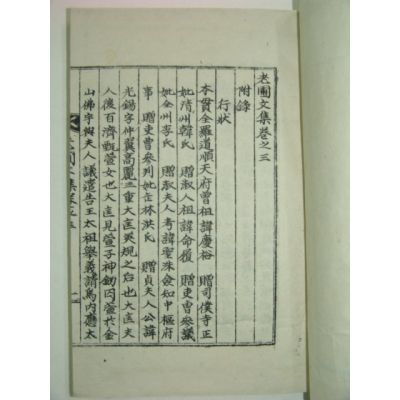 老圃文集卷之三
附錄
行狀
本貫全羅道順天府曾祖諱慶裕 贈司僕寺正
妣隋州韓氏 贈淑人祖諱命履 贈吏曹參議
妣全州李氏 贈淑夫人考諱聖洙僉知中樞府
事 贈吏曹參判妣林洪氏 贈貞夫人公諱
光錫字仲冀高麗三重大匡英規之后也大匡夫
人後百濟甄萱女也大匡見萱子神釰囚萱於金
山佛宇夫人議遣告王太祖擧義請爲內應太
圃文集卷之三